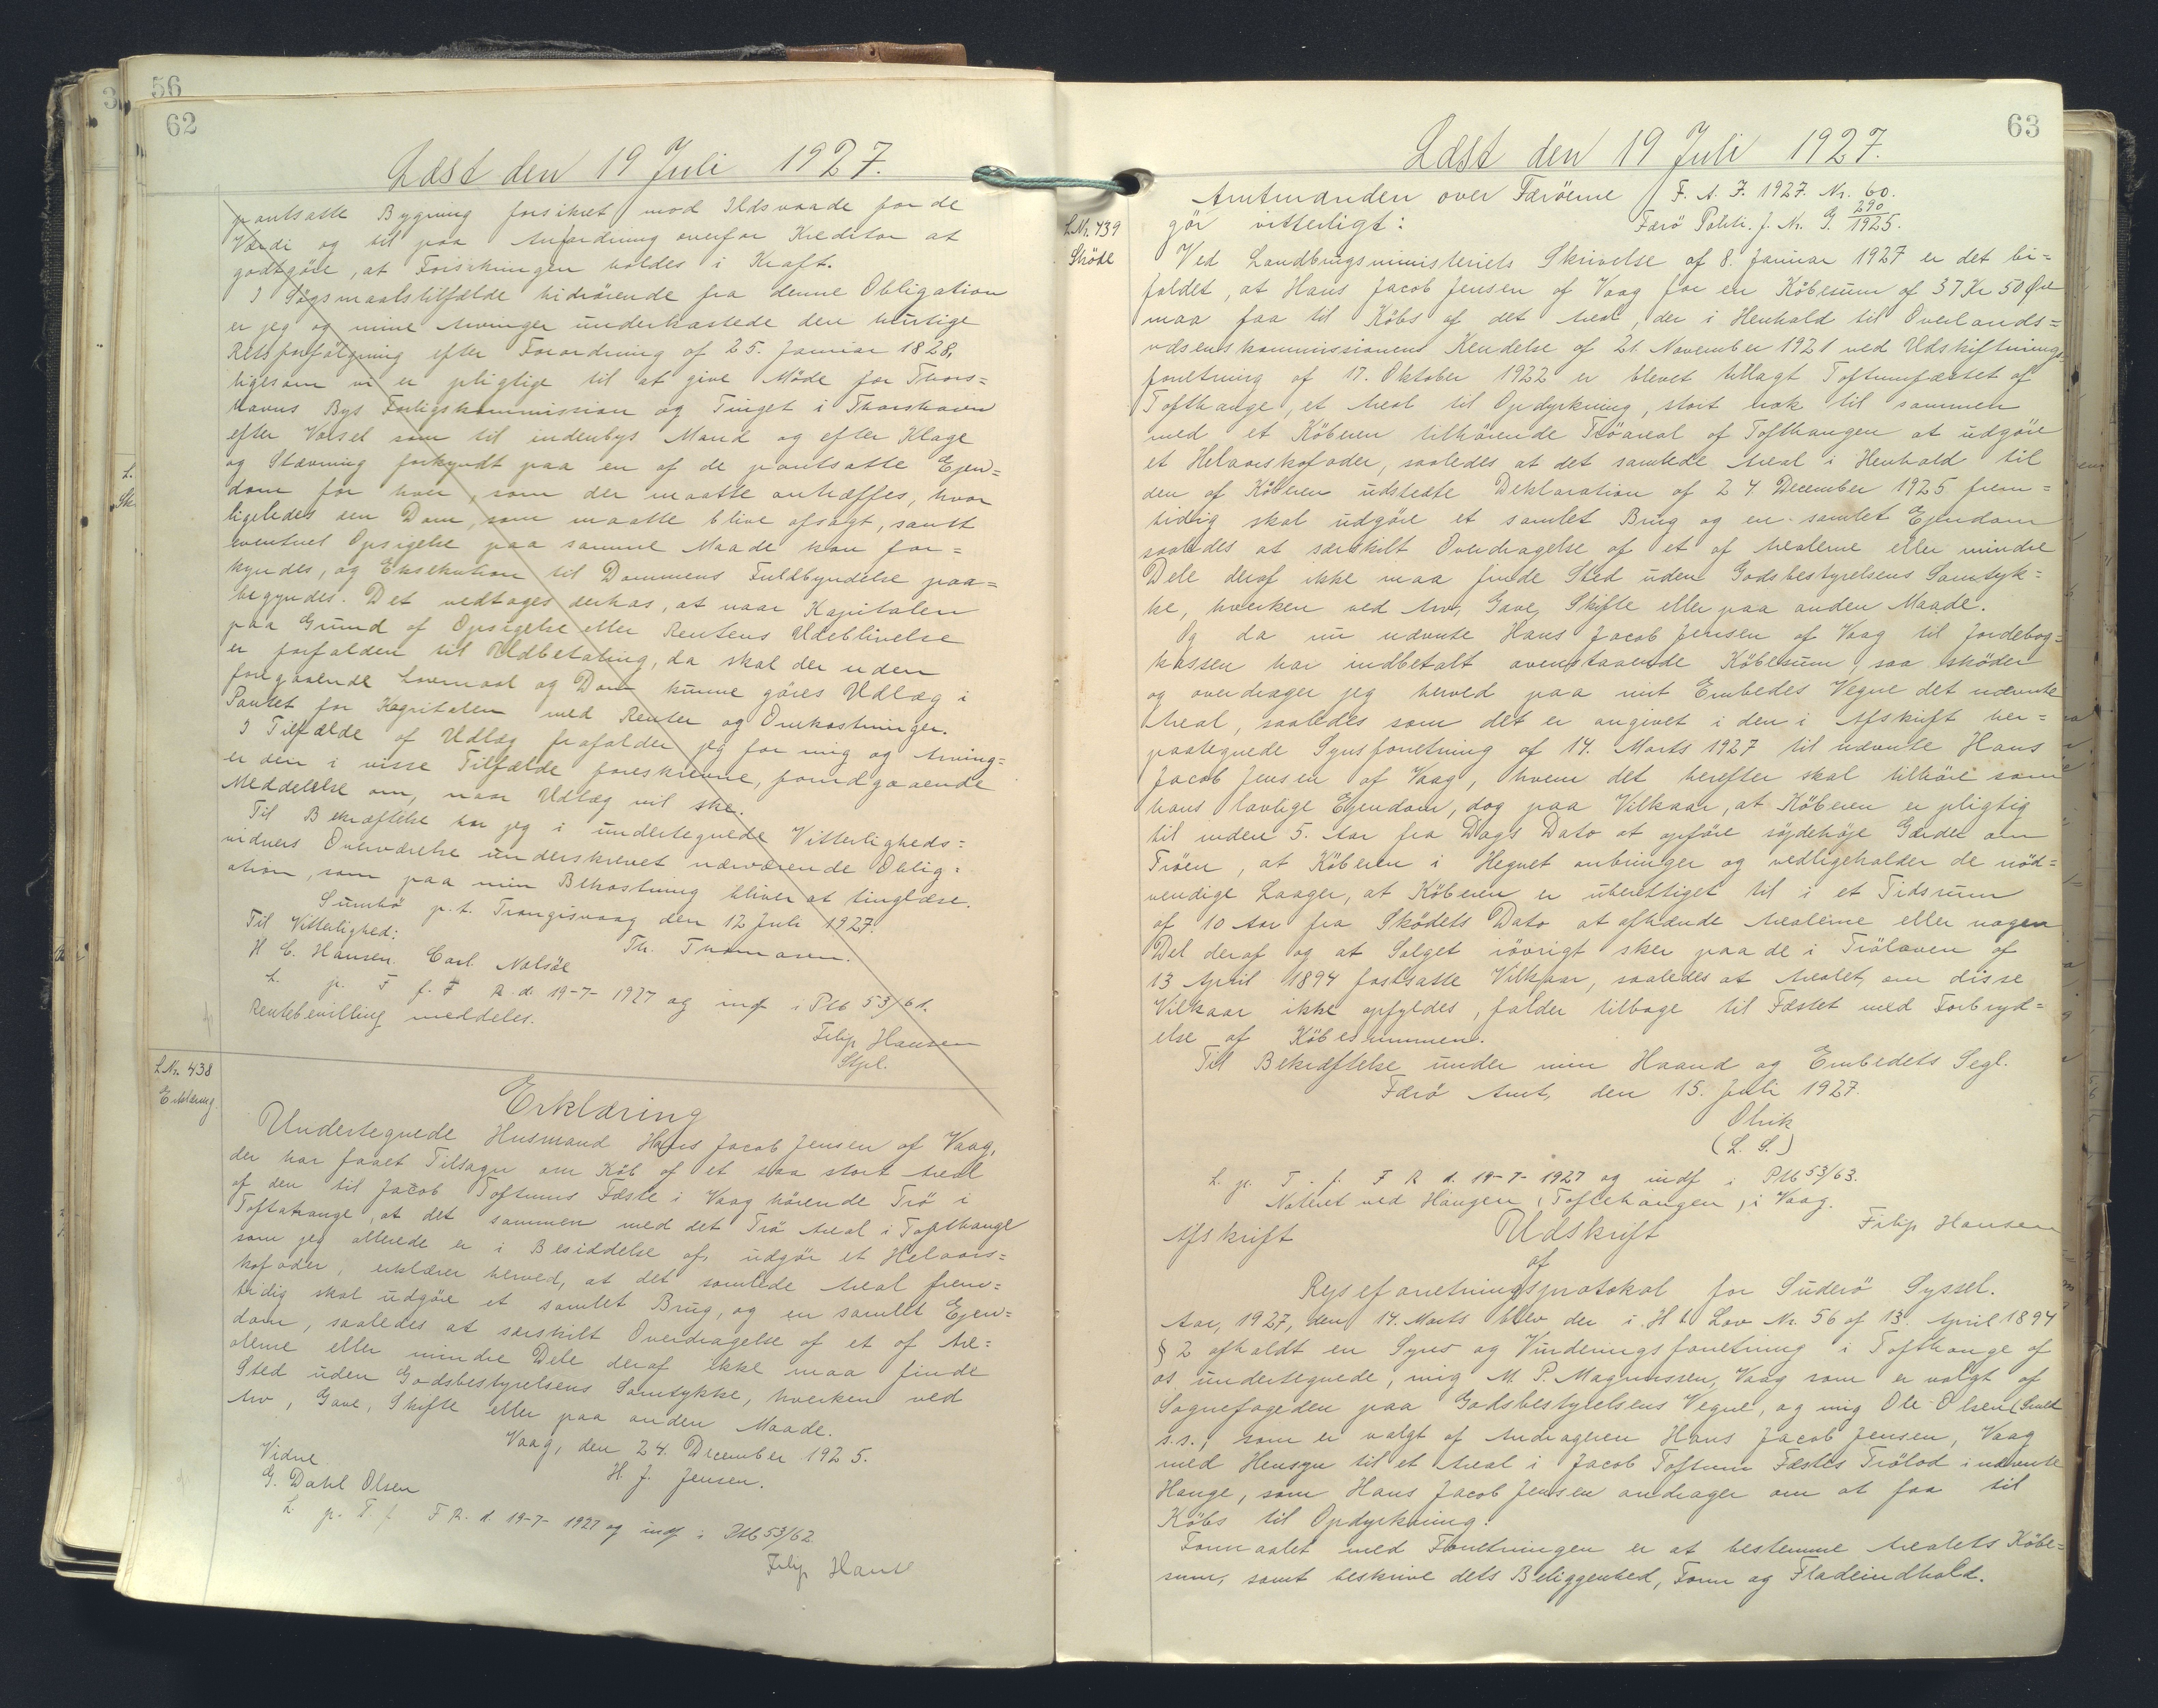 56
62
Læst den 19 Juli 1927.
pantsatte Bygning forsikret mod Ildsvaade for de
Værdi og til paa Anfordring overfor Kreditor at
godtgöre, at Forsikringen holdes i Kraft.
I Sögsmaalstilfælde hidrörende fra denne Obligation
er jeg og mine Arvinger underkastede den hurtige
Retsforfölgning efter Forordning af 25. Januar 1828,
ligesom vi er pligtige til at give Möde for Thors=
havns Bys Forligskommission og Tinget i Thorshavn
efter Varsel som til indenbys Mand og efter Klage
og Stævning forkyndt paa en af de pantsatte Ejen=
dom for hver, som der maatte antræffes, hvor
ligeledes den Dom, som maatte blive afsagt, samt
eventuel Opsigelse paa samme Maade kan for=
kyndes, og Eksekution til Dommens Fuldbyrdelse paa=
begyndes. Det vedtages derhos, at naar Kapitalen
paa Grund af Opsigelse eller Rentens Udeblivelse
er forfalden til Udbetaling, da skal der uden
foregaaende Lovmaal og Dom kunne göres Udlæg i
Pantet for Kapitalen med Renter og Omkostninger.
I Tilfælde af Udlæg frafalder jeg for mig og Arving=
er den i visse Tilfælde foreskrevne, forudgaaende
Meddelelse om, naar Udlæg vil ske.
Til Bekræftelse har jeg i undertegnede Vitterligheds=
vidners Overværelse underskrevet nærværende Oblig=
ation, som paa min Bekostning bliver at tinglæse.
Sumbö p.t. Trangisvaag den 12 Juli 1927.
Til Vitterlighed:
Th. Thomasen.
H C. Hansen. Carl Nolsöe
L. p. T f. F R. d. 19-7-1927 og indf i Ptb 53/61.
Rentebevilling meddeles.
Filip Hansen
Stpl.
L Nr. 438
Erklæring.
Erklæring
Undertegnede Husmand Hans Jacob Jensen af Vaag,
der har faaet Tilsagn om Köb af et saa stort Areal
af den til Jacob Toftums Fæste i Vaag hörende Trö i
Toftahange, at det sammen med det Trö Areal i Tofthange
som jeg allerede er i Besiddelse af, udgör et Helaars=
kofoder, erklærer herved, at det samlede Areal frem=
tidig skal udgöre et samlet Brug, og en samlet Ejen=
dom, saaledes at særskilt Overdragelse af et af Are=
alerne eller mindre Dele deraf ikke maa finde
Sted uden Godsbestyrelsens Samtykke, hverken ved
Arv, Gave, Skifte eller paa anden Maade.
Vaag, den 24. December 1925.
Vidne
H J. Jensen.
G. Dahl Olsen
L. p. T. f. F R. d. 19-7-1927 og indf i Ptb 53/62
Filip Hans
63
Læst den 19 Juli 1927.
L Nr. 439
Sköde
Amtmanden over Færöerne
gör vitterligt:
F. A. J. 1927. Nr. 60.
Færö Politi. J. Nr. G. 290/1925.
Ved Landbrugsministeriets Skrivelse af 8. Januar 1927 er det bi=
faldet, at Hans Jacob Jensen af Vaag for en Köbesum af 37 Kr 50 Øre
maa faa til Köbs af det Areal, der i Henhold til Overlands=
væsenskommissionens Kendelse af 21. November 1921 ved Udskiftnings=
forretning af 17. Oktober 1922 er blevet tillagt Toftumfæstet af
Tofthange, et Areal til Opdyrkning, stort nok til sammen
med et Köberen tilhörende Tröareal af Tofthangen at udgöre
et Helaarskofoder, saaledes at det samlede Areal i Henhold til
den af Köberen udstedte Deklaration af 24. December 1925 frem=
tidig skal udgöre et samlet Brug og en samlet Ejendom
saaledes at særskilt Overdragelse af et af Arealerne eller mindre
Dele deraf ikke maa finde Sted uden Godsbestyrelsens Samtyk=
ke, hverken ved Arv, Gave, Skifte eller paa anden Maade.
Og da nu nævnte Hans Jacob Jensen af Vaag til Jordebog=
kassen har indbetalt ovenstaaende Köbesum, saa sköder
og overdrager jeg herved paa mit Embedes Vegne det nævnte
Areal, saaledes som det er angivet i den i Afskrift her=
paategnede Synsforretning af 14. Marts 1927 til nævnte Hans
Jacob Jensen af Vaag, hvem det herefter skal tilhöre som
hans lovlige Ejendom, dog paa Vilkaar, at Köberen er pligtig
til inden 5. Aar fra Dags Dato at opföre söjdehöje Gærder om
Tröen, at Köberen i Hegnet anbringer og vedligeholder de nöd=
vendige Laager, at Köberen er uberettiget til i et Tidsrum
af 10 Aar fra Sködets Dato at afhænde Arealerne eller nogen
Del deraf og at Salget iövrigt sker paa de i Trölaven af
13 April 1894 fastsatte Vilkaar, saaledes at Arealet, om disse
Vilkaar ikke opfyldes, falder tilbage til Fæstet med Forbryd=
else af Köbesummen.
Til Bekræftelse under min Haand og Embedets Segl.
Færö Amt, den 15. Juli 1927.
Olrik
(L. S.)
L. p. T. f. F R d. 19-7-1927 og indf i Ptb 53/63.
Noteret ved Hangen (Toftehangen) i Vaag.
Filip Hansen
Afskrift
Udskrift
af
Rejseforretningsprotokol for Suderö Syssel.
Aar, 1927, den 14. Marts blev der i H. t. Lov Nr. 56 af 13. April 1894
§ 2 afholdt en Syns og Vurderingsforretning i Tofthange af
os undertegnede, mig M. P. Magnussen, Vaag som er valgt af
Sognefogeden paa Godsbestyrelsens Vegne, og mig Ole Olsen (Smed
s.s., som er valgt af Andrageren Hans Jacob Jensen, Vaag
med Hensyn til et Areal i Jacob Toftum Fæstes Trölod i nævnte
Hange, som Hans Jacob Jensen andrager om at faa til
Köbs til Opdyrkning.
Formaalet med Forretningen er at bestemme Arealets Köbe=
sum, samt beskrive dets Beliggenhed, Form og Fladeindhold.